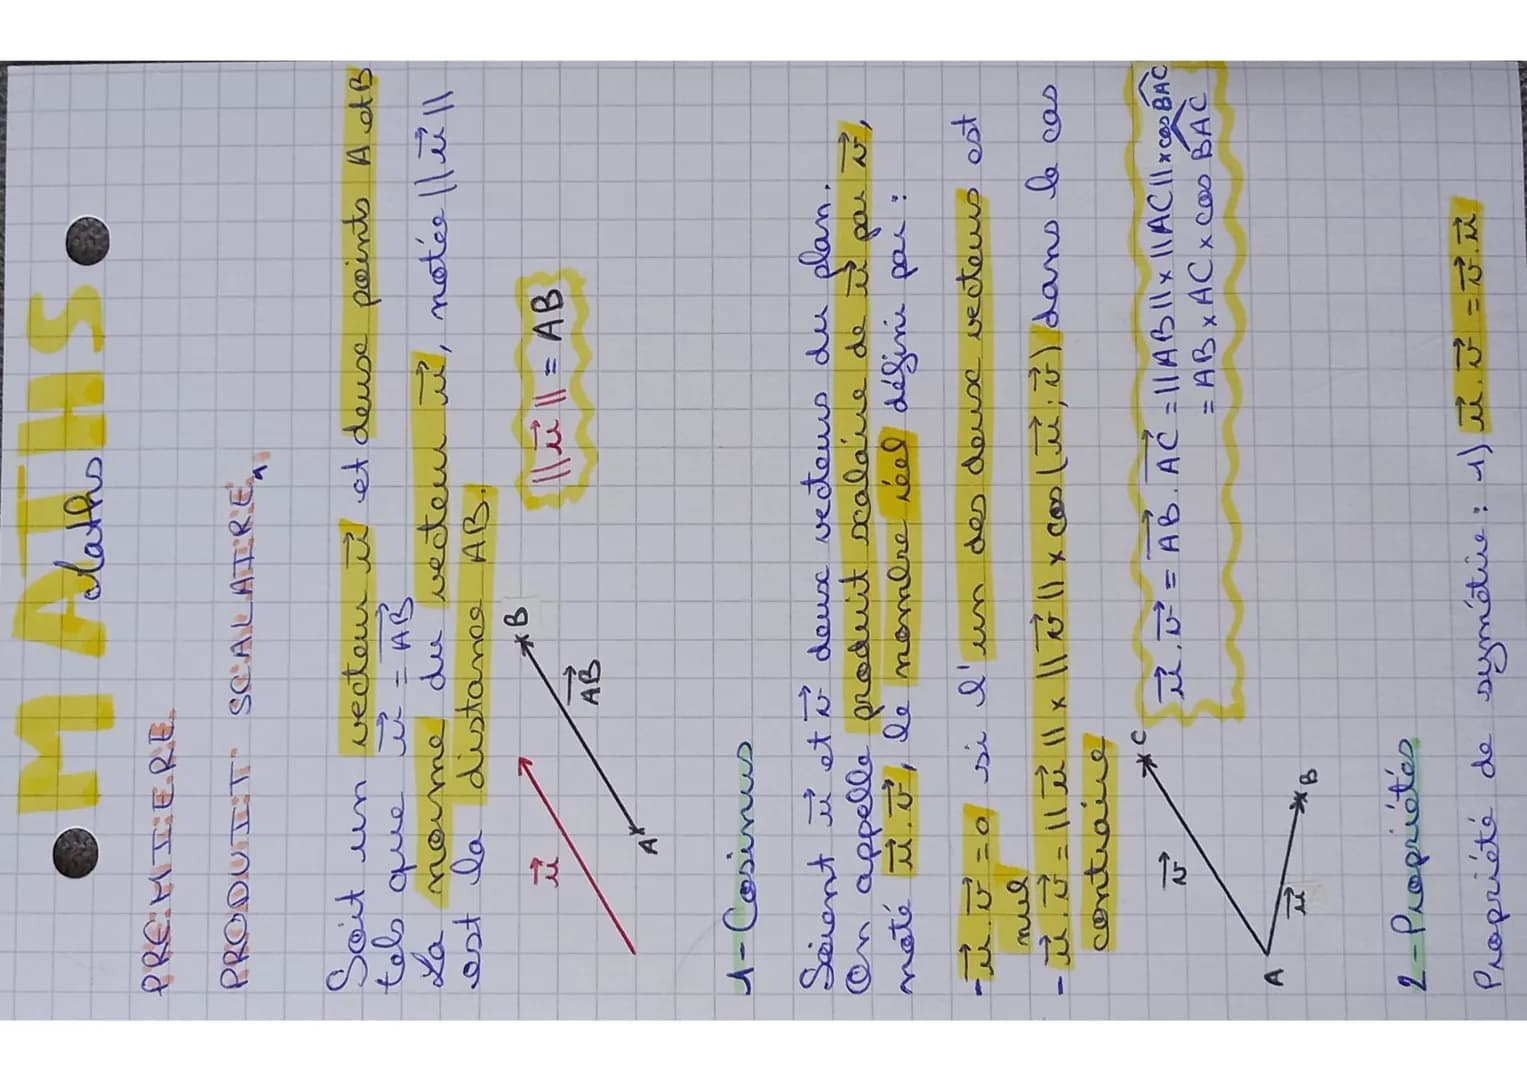 MATHS
Maths
PREMIERE.
PRODUIT SCALAIRE.
Soit un vecteur u⃗ et deux points A et B
tels que u⃗ = AB⃗
La norme du vecteur u⃗, notée ||u⃗||
est la distance AB.
||u⃗|| = AB
u⃗
AB⃗
A
B
1-Cosinus
Soient u⃗ et v⃗ deux vecteurs du plan.
On appelle produit scalaire de u⃗ par v⃗,
noté u⃗.v⃗, le nombre réel défini par :
- u⃗.v⃗ = 0 si l'un des deux vecteurs est
nul
- u⃗.v⃗ = ||u⃗|| × ||v⃗|| × cos(u⃗;v⃗) dans le cas
contraire
C
v⃗
u⃗
A
B
u⃗.v⃗ = AB⃗.AC⃗ = ||AB|| × ||AC|| × cos BAC^
= AB × AC × cos BAC^
2-Propriétés
Propriété de symétrie : 1) u⃗.v⃗ = v⃗.u⃗